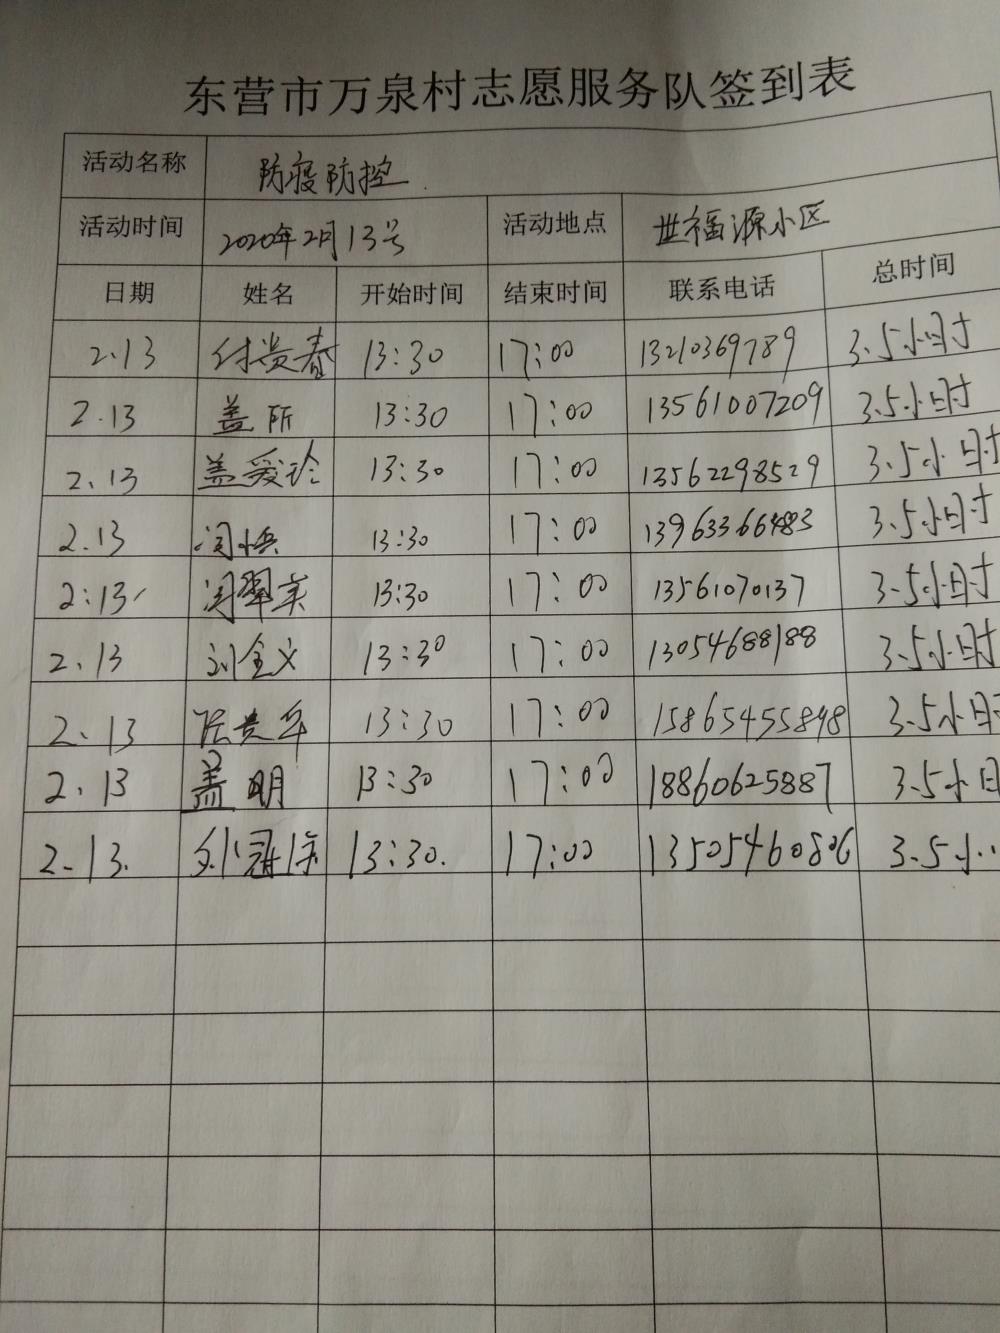 东营市万泉村志愿服务队签到表
活动名称 防疫防控
活动时间 2020年2月13号 活动地点 世福源小区
日期 姓名 开始时间 结束时间 联系电话 总时间
2.13 付贵春 13:30 17:00 13210369789 3.5小时
2.13 盖所 13:30 17:00 13561007209 3.5小时
2.13 盖爱玲 13:30 17:00 13562298529 3.5小时
2.13 13:30 17:00 13963366483 3.5小时
2:13 闫翠美 13:30 17:00 13561070137 3.5小时
2.13 刘金义 13:30 17:00 13054688188 3.5小时
2.13 13:30 17:00 15865455898 3.5小时
2.13 盖明 13:30 17:00 18860625887 3.5小时
2.13. 13:30. 17:00 13505460806 3.5小